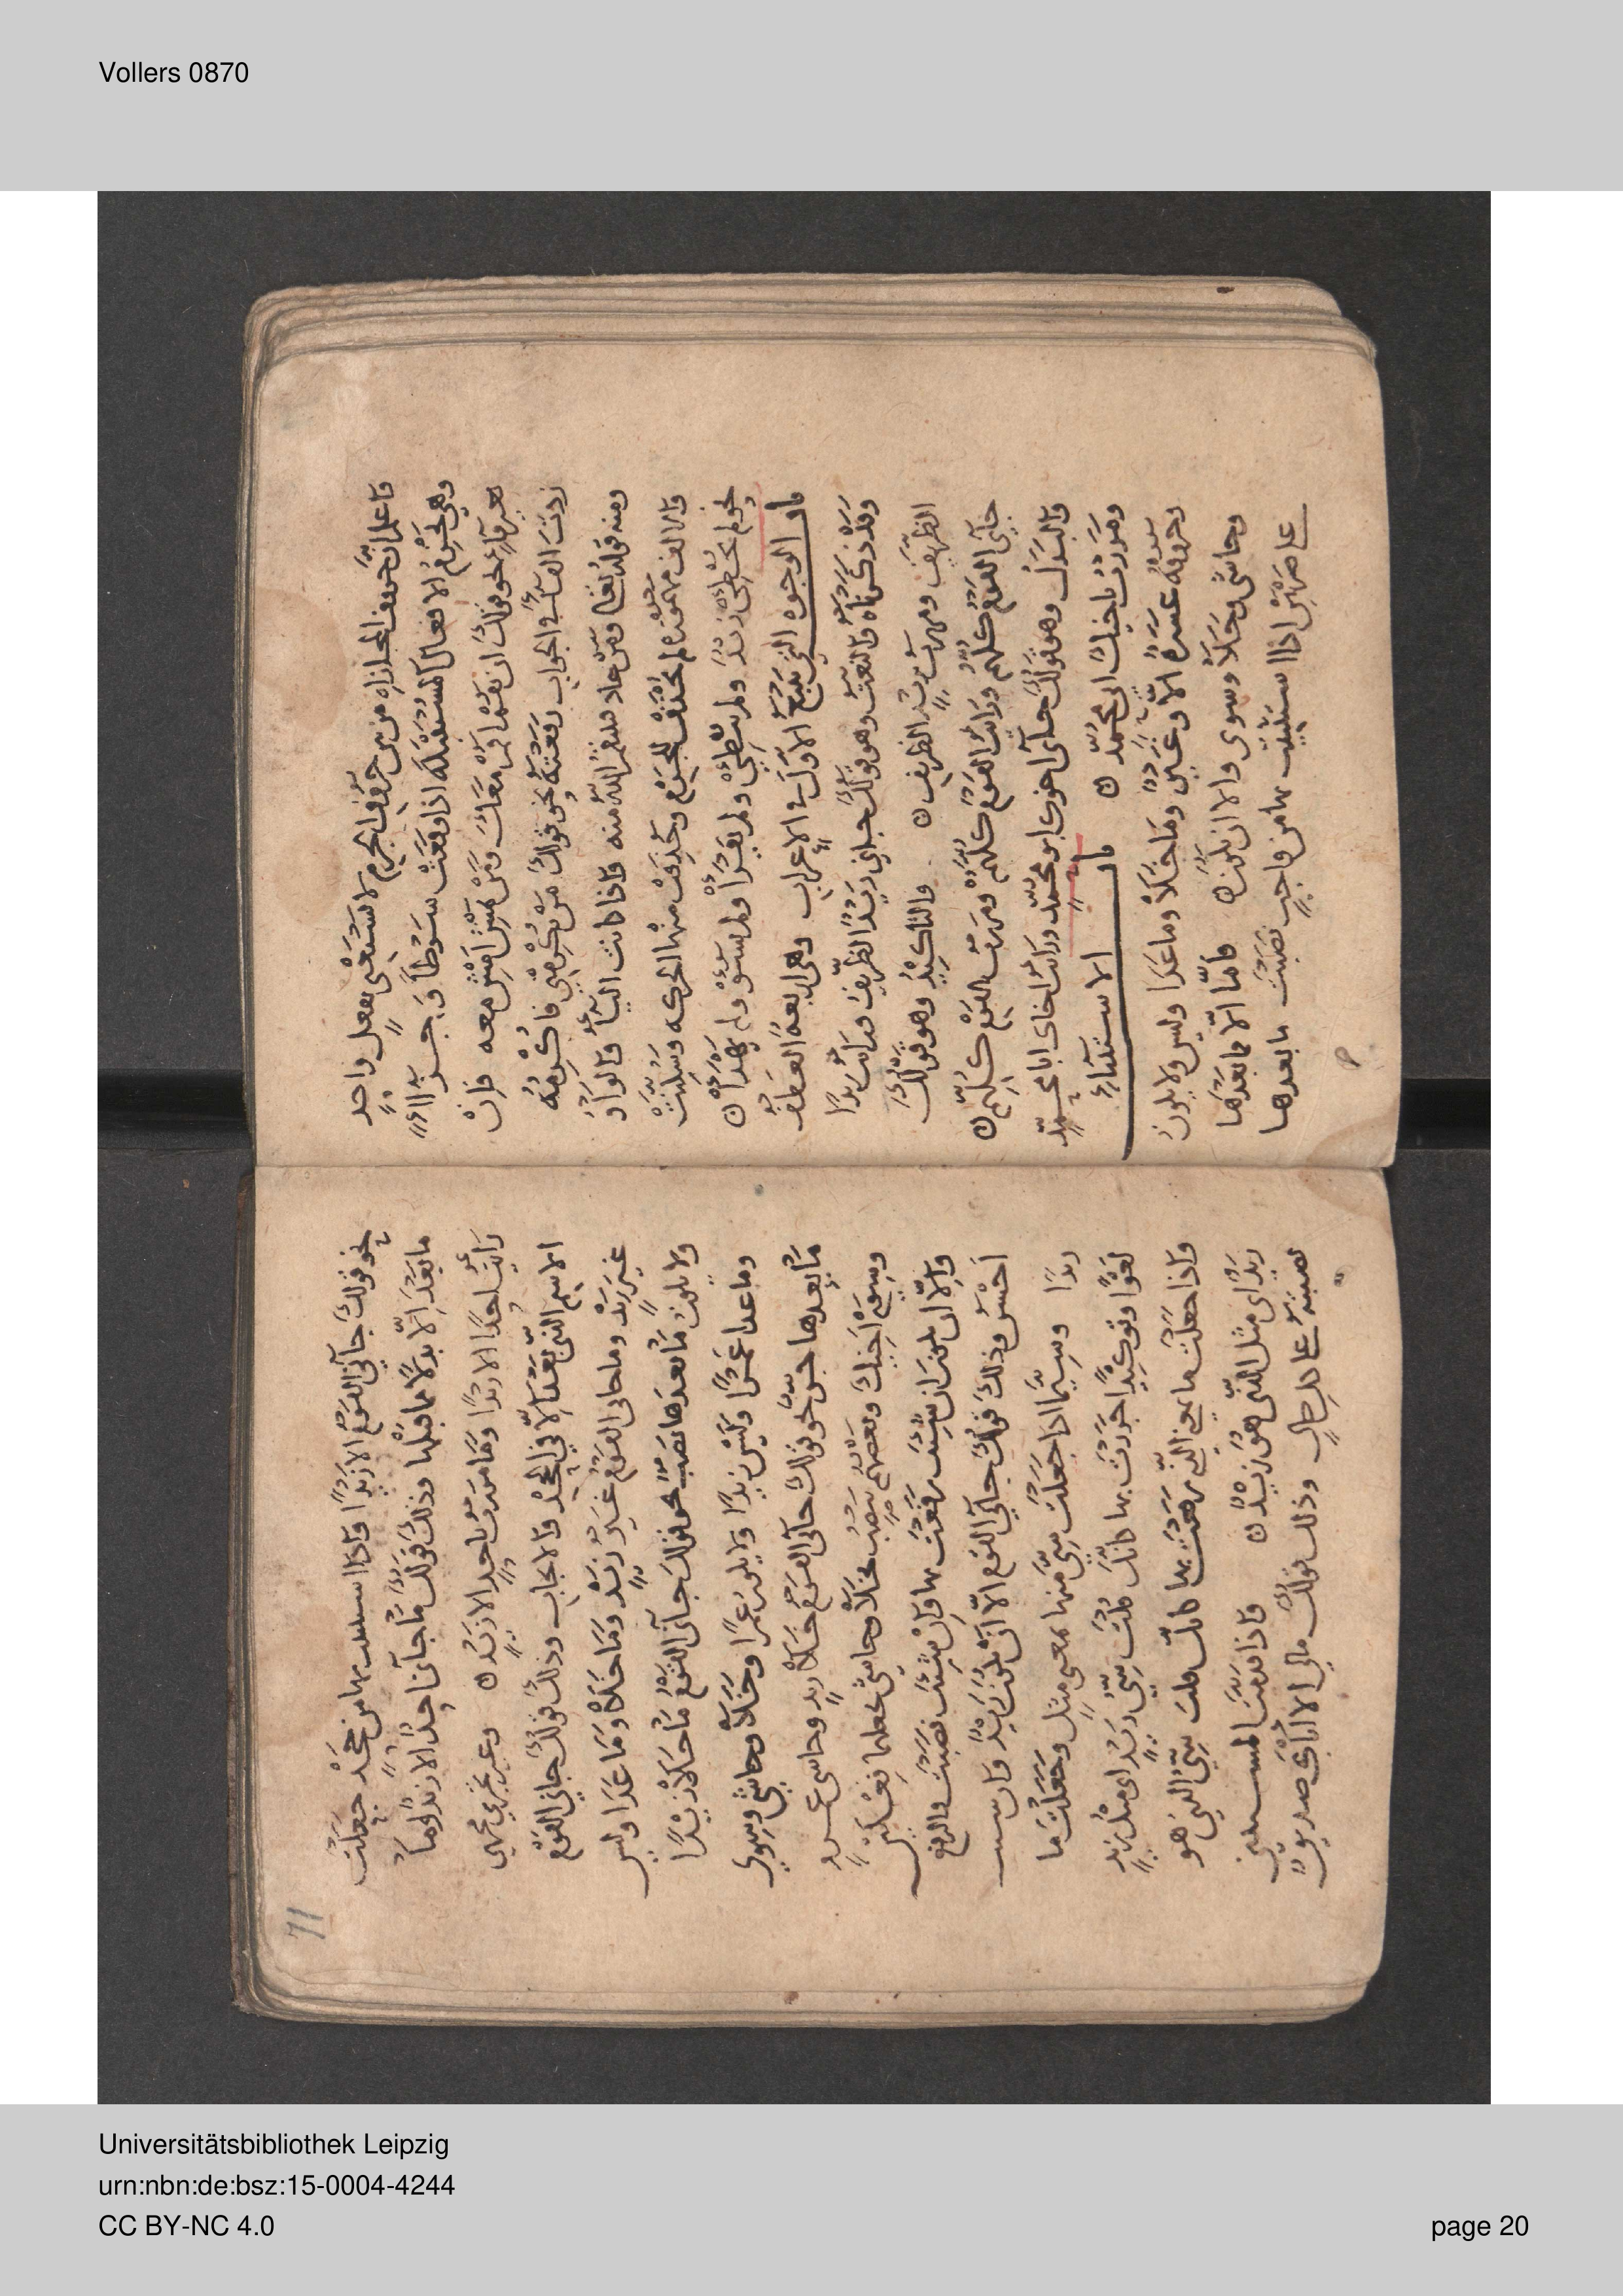 Vollers 0870
فاعلم ان حروف المجازاه من بين حروف الجزم لا تستغنى بفعل واحدٍ
وهي تجزم الافعال المستقبلة اذا وقعت شرطا وجزاء
بغير فاء نحو قولك ان تقم اقم معك ومن يمش امش معه فإن
زدت الفاء في الجواب رفعته نحو قولك من يكرمني فاكرمه
ومنه قوله تعالى ومن عاد فينتقم الله منه فاذا كانت الياء والواو
والالف مهموزة لم تحذف للجزم وحذفت منها الحركه وسكنت
نحو لم يخطئ زيد ولم يبطئ ولم يقرأ ولم يسؤ ولم يهدأ
باب الوجوه التي تتبع الاول في الاعراب وهي اربعة العطف
وقد ذكرناه والنعت وهو قولك جاني زيد الظريف ورايت زيدا
الظريف ومررت بزيد الظريف والتاكيد وهو قولك
جاني القوم كلهم ورايت القوم كلهم ومررت بالقوم كلهم
والبدل وهو قولك جاني اخوك ابو محمد ورايت اخاك ابا محمد
ومررت باخيك ابي محمد باب الاستثناء
وحروفه عشرة الا وغير وما خلا وما عدا وليس ولا يكون
وحاشى وخلا وسوى والا ان يكون فامّا الّا فما بعدها
على ضربين اذا استثنيت بها من واجب نصبت ما بعدها
71
نحو قولك جاني القوم الا زيدا واذا استثنيت بها من جحد جعلت
ما بعد الا بدلا مما قبلها وذلك قولك ما جاني احد الا زيد وما
رايت احدا الا زيدا وما مررت باحد الا زيد وغير تجري مجرى
الاسم الذي بعد الا في الجحد والايجاب وذلك قولك جاني القوم
غير زيد وما جاني القوم غير زيد وما خلا وما عدا وليس
ولا يكون ما بعدها نصب نحو قولك جاني القوم ما خلا زيدا
وما عدا عمرا وليس زيدا ولا يكون عمرا وخلا وحاشى وسوى
ما بعدها جر نحو قولك جاني القوم خلا زيد وحاشى عمرو
وسوى اخيك وبعضهم ينصب بخلا وحاشى يجعلهما فعلين
والا ان يكون ان شئت رفعت بها وان شئت نصبت والرفع
احسن وذلك قولك جاني القوم الا ان يكون زيد وان شئت
زيدا وسيما اذا جعلت سي منها بمعنى مثل وجعلت ما
لغوا وتوكيدا جررت بها كانك قلت سي زيد اي مثل زيد
واذا جعلت ما بمعنى الذي رفعت بها كانك قلت سي الذي هو
زيد اي مثل الذي هو زيد فاذا قدمت المستثنى
نصبته على كل حال وذلك قولك مالي الا اباك صديق
Universitätsbibliothek Leipzig
urn:nbn:de:bsz:15-0004-4244
CC BY-NC 4.0
page 20